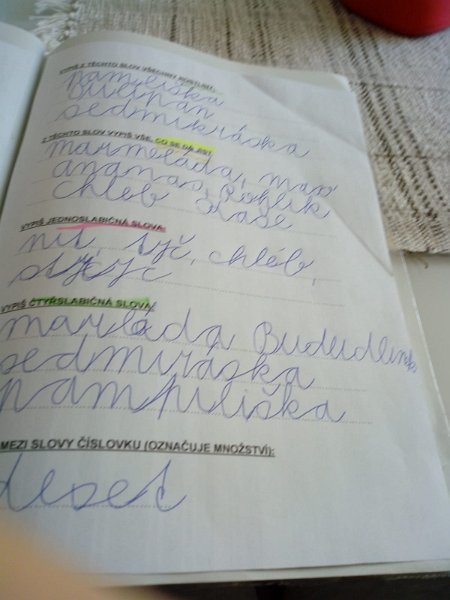 VYPIŠ Z TĚCHTO SLOV VŠECHNY ROSTLINY:
pampliška
tulipán
sedmikráska
Z TĚCHTO SLOV VYPIŠ VŠE, CO SE DÁ JÍST
marmeláda, 
ananas, Rohlík
chléb kaše
VYPIŠ JEDNOSLABIČNÁ SLOVA:
nit, tyč, chléb,
VYPIŠ ČTYŘSLABIČNÁ SLOVA:
marláda
sedmiráska
pampliška
MEZI SLOVY ČÍSLOVKU (OZNAČUJE MNOŽSTVÍ):
deset